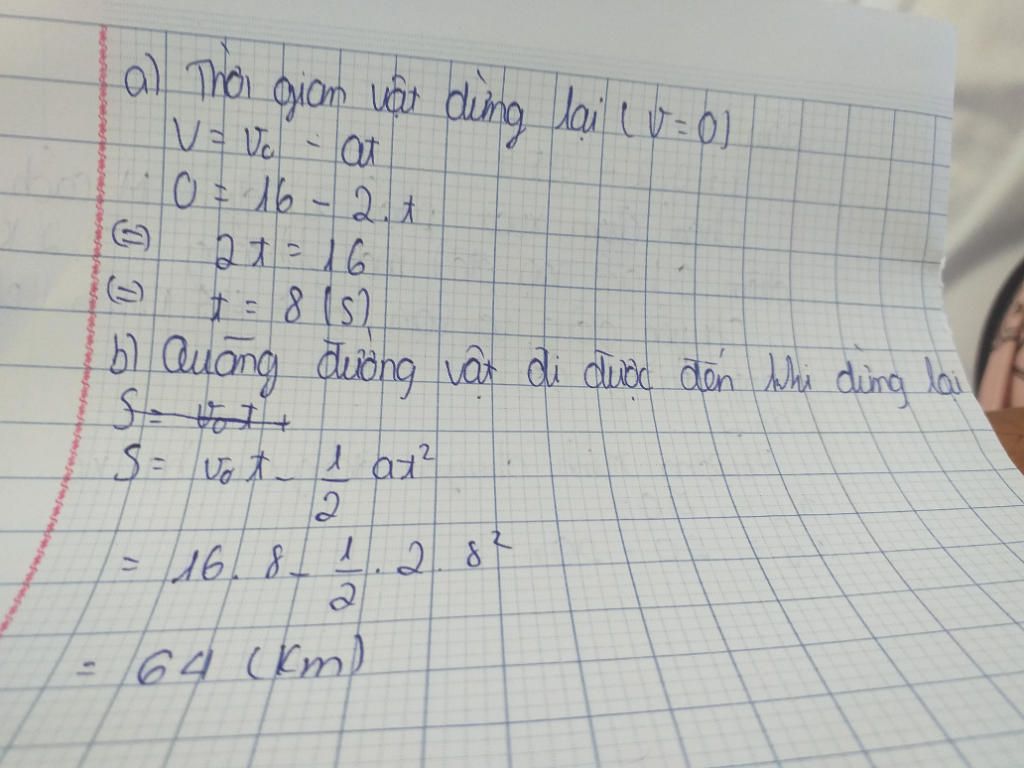 a) Thời gian vật dừng lại (v=0)
V = v₀ - at
0 = 16 - 2.t
(=) 2t = 16
(=) t = 8 (s)
b) Quãng đường vật đi được đến khi dừng lại
S = v₀t +
S = v₀t - 1/2 at²
= 16. 8 - 1/2 . 2. 8²
= 64 (Km)